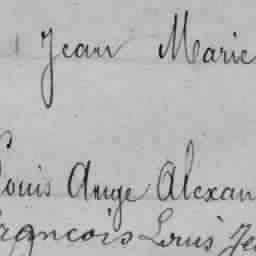 Jean Marie
Louis Ange Alexan
François Louis Je